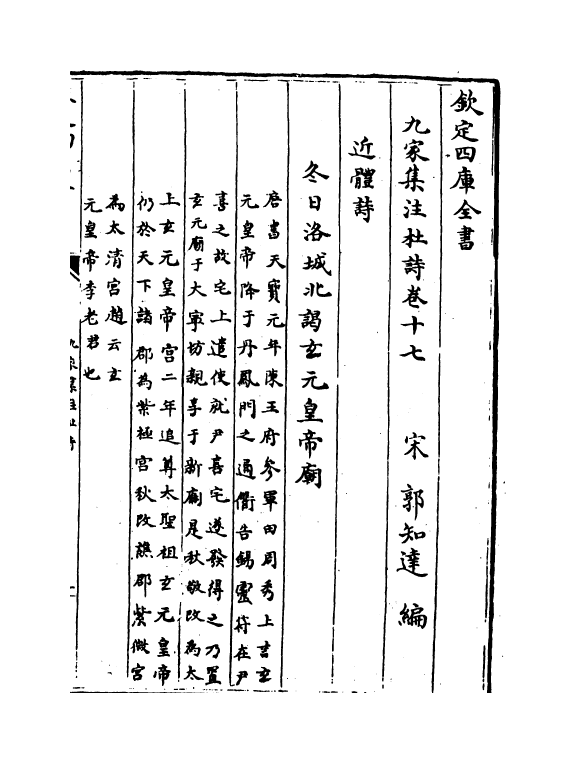 欽定四庫全書
九家集注杜詩卷十七 宋 郭知達 編
近體詩
冬日洛城北謁玄元皇帝廟
唐書天寶元年陳王府參軍田周秀上言玄
元皇帝降于丹鳳門之通衢告錫靈符在尹
喜之故宅上遣使就尹喜宅遂發得之乃置
玄元廟于大寧坊親享于新廟是秋敬改為太
上玄元皇帝宫二年追尊太聖祖玄元皇帝
仍於天下諸郡為紫極宫秋改譙郡紫微宫
為太清宫趙云玄
元皇帝李老君也
九家集注杜詩